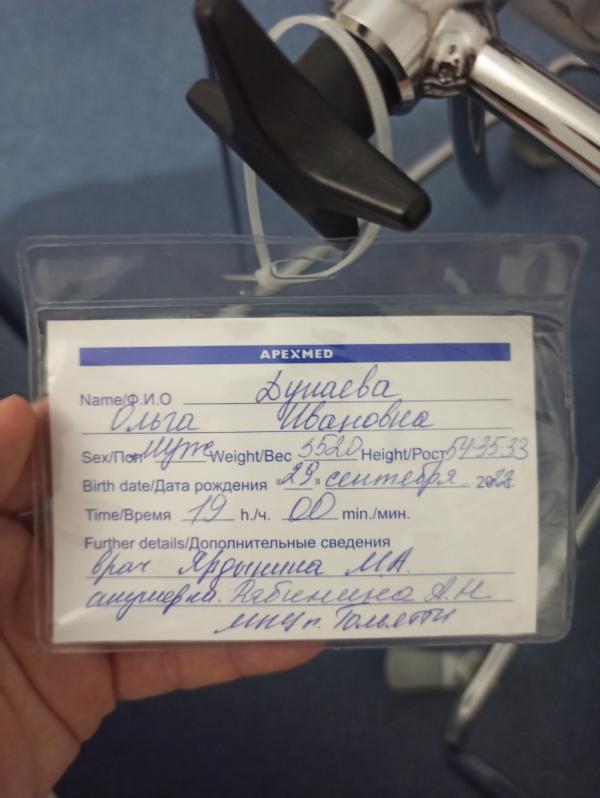 APEXMED
Name/Ф.И.О Дунаева
Ольга Ивановна
Sex/Пол муж Weight/Вес 3520 Height/Рост 54 35 33
Birth date/Дата рождения «29» сентября 2022
Time/Время 19 h./ч. 00 min./мин.
Further details/Дополнительные сведения
врач М.А.
акушерка: Рябинина А.Н.
г. Тольятти